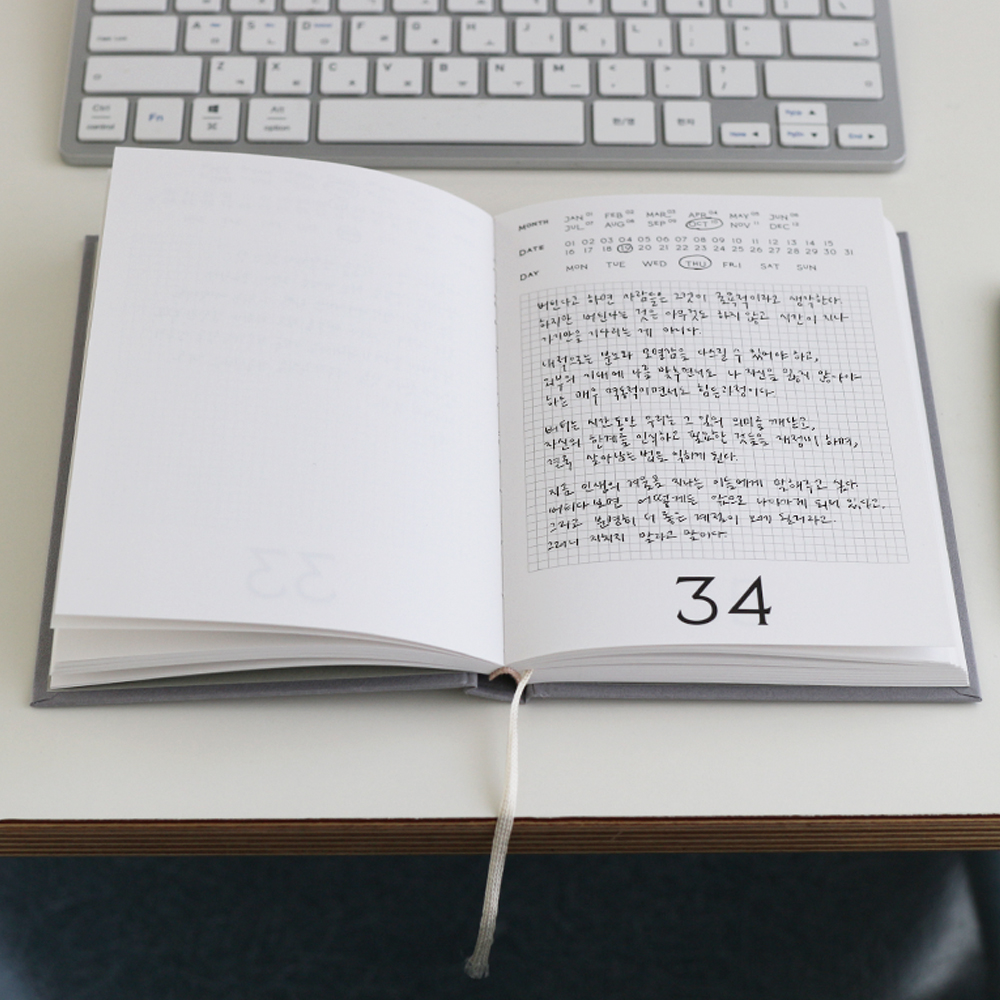 Caps Lock A ㅁ S ㄴ D ㅇ F ㄹ G ㅎ H ㅗ J ㅓ K ㅏ L ㅣ
Z ㅋ X ㅌ C ㅊ V ㅍ B ㅠ N ㅜ M ㅡ < , > . ? /
Ctrl control Fn ⌘ Alt option 한/영 한자 Home PgUp PgDn End
MONTH JAN 01 FEB 02 MAR 03 APR 04 MAY 05 JUN 06
JUL 07 AUG 08 SEP 09 OCT 10 NOV 11 DEC 12
DATE 01 02 03 04 05 06 07 08 09 10 11 12 13 14 15
16 17 18 19 20 21 22 23 24 25 26 27 28 29 30 31
DAY MON TUE WED THU FRI SAT SUN
버틴다고 하면 사람들은 그것이 굴욕적이라고 생각한다.
하지만 버틴다는 것은 아무것도 하지 않고 시간이 지나
가기만을 기다리는 게 아니다.
내적으로는 분노와 모멸감을 다스릴 수 있어야 하고,
외부의 기대에 나를 맞추면서도 나 자신을 잃지 않아야
하는 매우 역동적이면서도 힘든 과정이다.
버티는 시간동안 우리는 그 일의 의미를 깨닫고,
자신의 한계를 인식하고 필요한 것들을 재정비 하며,
결국 살아남는 법을 익히게 된다.
지금 인생의 겨울을 지나는 이들에게 말해주고 싶다.
버티다 보면 어떻게든 앞으로 나아가게 되어 있다고.
그리고 분명히 더 좋은 계절이 오게 될거라고.
그러니 지치지 말라고 말이다.
34
33